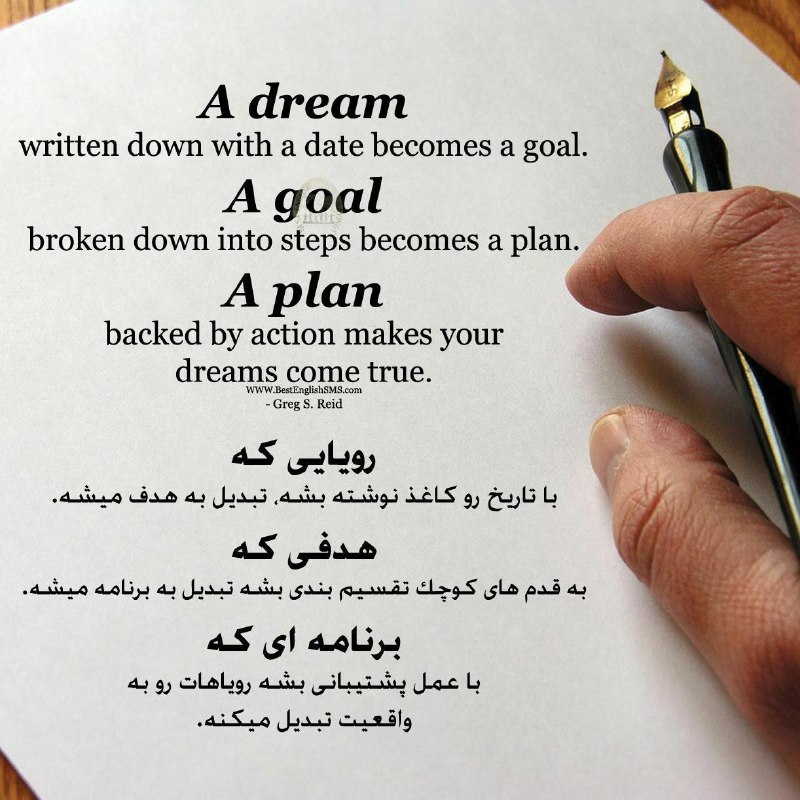 A dream
written down with a date becomes a goal.
A goal
broken down into steps becomes a plan.
A plan
backed by action makes your
dreams come true.
WWW.BestEnglishSMS.com
- Greg S. Reid
رویایی که
با تاریخ رو کاغذ نوشته بشه، تبدیل به هدف میشه.
هدفی که
به قدم های کوچك تقسیم بندی بشه تبدیل به برنامه میشه.
برنامه ای که
با عمل پشتیبانی بشه رویاهات رو به
واقعیت تبدیل میکنه.